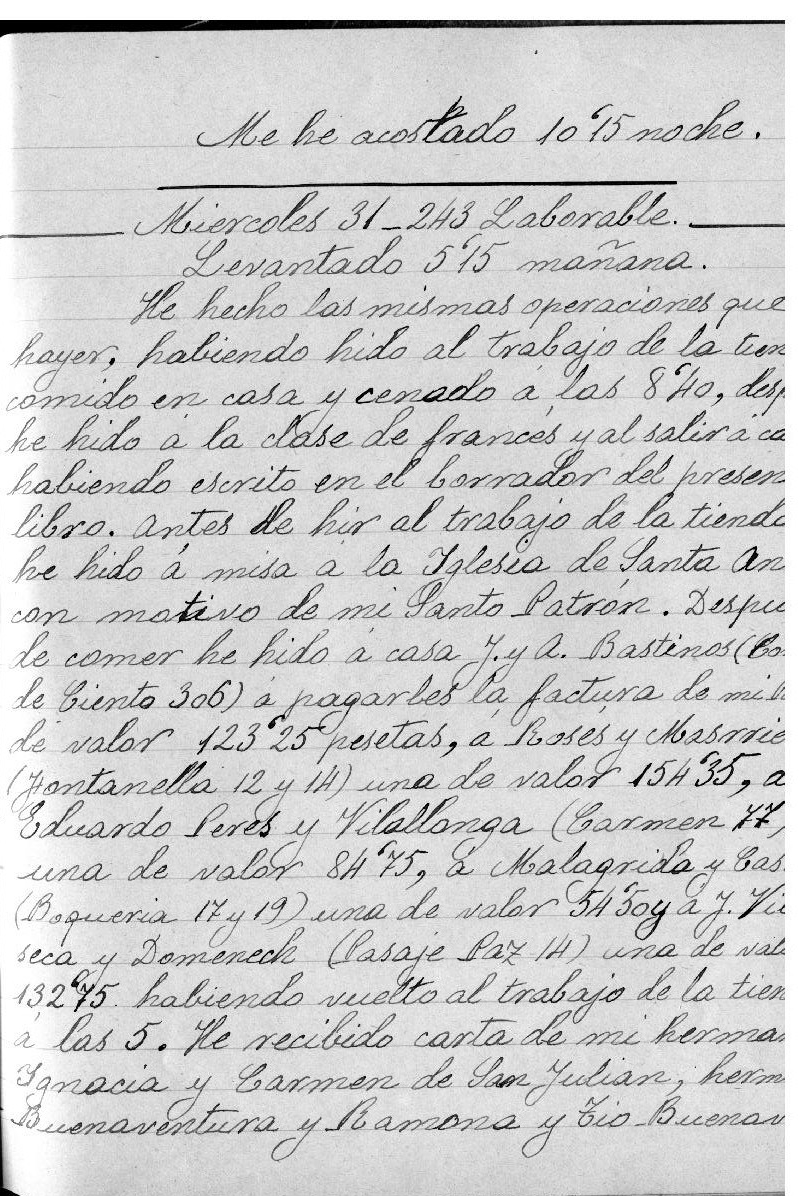 Me he acostado 10'15 noche.
Miercoles 31_243 Laborable.
Levantado 5'15 mañana.
He hecho las mismas operaciones que
hayer, habiendo hido al trabajo de la tien
comido en casa y cenado á las 8'40, desp
he hido á la clase de francés y al salir á ca
habiendo escrito en el borrador del presen
libro. Antes de hir al trabajo de la tienda
he hido á misa á la Iglesia de Santa An
con motivo de mi Santo Patrón. Despu
de comer he hido á casa J. y A. Bastinos (Co
de Ciento 306) á pagarles la factura de mi
de valor 123'25 pesetas, á Rosés y Masrrie
(Fontanella 12 y 14) una de valor 154'35, á
Eduardo Peres y Vilallonga (Carmen 77,
una de valor 84'75, á Malagrida y Cas
(Boqueria 17 y 19) una de valor 54'50 y á J. Vil
seca y Domenech (Pasaje Paz 14) una de valo
132'75 habiendo vuelto al trabajo de la tien
á las 5. He recibido carta de mi herman
Ignacia y Carmen de San Julian, herm
Buenaventura y Ramona y Tio Buenav